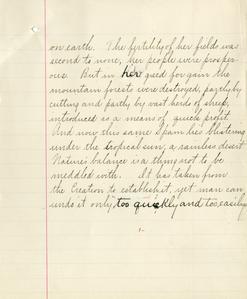 on earth. The fertility of her fields was
second to none, her people were prosper-
ous. But in her greed for gain the
mountain forests were destroyed, partly by
cutting and partly by vast herds of sheep,
introduced as a means of quick profit.
And now this same Spain lies blistering
under the tropical sun, a rainless desert.
Nature's balance is a thing not to be
meddled with. It has taken from
the Creation to establish it, yet man can
undo it only too quickly and too easily